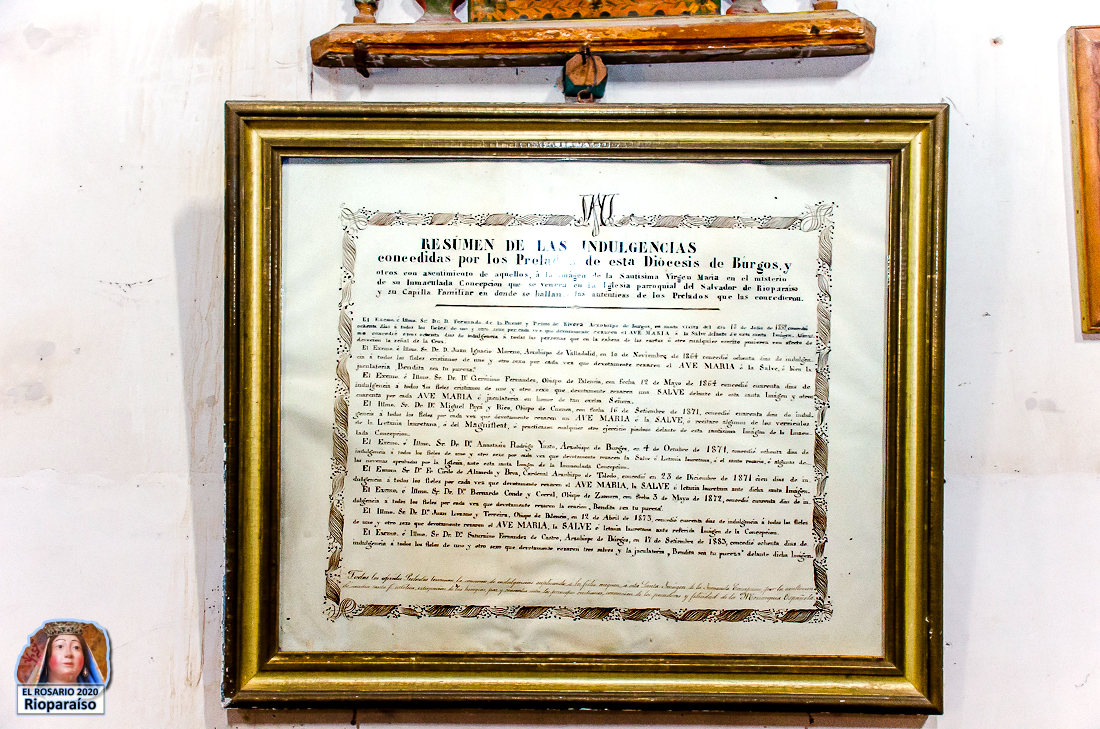 RESÚMEN DE LAS INDULGENCIAS
concedidas por los de esta Diócesis de Búrgos, y
otros con asentimiento de aquellos, á la imágen de la Santísima Vírgen Maria en el misterio
de su Inmaculada Concepcion que se venera en la Iglesia parroquial del Salvador de Rioparaiso
y su Capilla Familiar en donde se hallan las autenticas de los Prelados que las concedieron.
El Excmo. é Illmo. Sr. Dr. D. Fernando de la Puente y Primo de Rivera Arzobispo de Burgos, en santa visita del dia de Julio de concedió
ochenta dias á todos los fieles de uno y otro sexo por cada vez que devotamente rezaren el AVE MARIA ó la Salve delante de esta santa Imágen.
concedió otros ochenta dias de indulgencia, á todas las personas que en la cabeza de las cartas ó otro cualquier escrito pusieren con afecto de
devocion la señal de la Cruz.
El Excmo. é Illmo. Sr. Dr. D. Juan Ignacio Moreno, Arzobispo de Valladolid, en 10 de Noviembre de 1864 concedió ochenta dias de indulgen-
cia á todos los fieles cristianos de uno y otro sexo por cada vez que devotamente rezaren el AVE MARIA ó la Salve, ó bien la
jaculatoria Bendita sea tu pureza.
El Excmo. é Illmo. Sr. Dr. Dn. Gerónimo Fernandez, Obispo de Palencia, con fecha 12 de Mayo de 1864 concedió cuarenta dias de
indulgencia á todos los fieles cristianos de uno y otro sexo que devotamente rezaren una SALVE delante de esta santa Imágen y otros
cuarenta por cada AVE MARIA ó jaculatoria en honor de tan excelsa Señora.
El Illmo. Sr. Dr. Dn. Miguel Payá y Rico, Obispo de Cuenca, con fecha 16 de Setiembre de 1871, concedió cuarenta dias de indul-
gencia á todos los fieles por cada vez que devotamente rezaren un AVE MARIA ó la SALVE, ó recitare algunos de los versículos
de la Letania lauretana, ó del Magnificat, ó practicare cualquier otro ejercicio piadoso delante de esta santísima Imágen de la Inmacu-
lada Concepcion.
El Excmo. é Illmo. Sr. Dr. Dn. Anastasio Rodrigo Yusto, Arzobispo de Burgos, en 4 de Octubre de 1871, concedió ochenta dias de
indulgencia á todos los fieles de uno y otro sexo por cada vez que devotamente rezaren la Salve ó Letania lauretana, ó el santo rosario, ó alguna de
las novenas aprobadas por la Iglesia, ante esta santa Imágen de la Inmaculada Concepcion.
El Emmo. Sr. Dn. Fr. Cirilo de Alameda y Brea, Cardenal Arzobispo de Toledo, concedió en 23 de Diciembre de 1871 cien dias de in-
dulgencia á todos los fieles por cada vez que devotamente rezaren el AVE MARIA, la SALVE ó letania lauretana ante dicha santa Imágen.
El Excmo. é Illmo. Sr. Dr. Dn. Bernardo Conde y Corral, Obispo de Zamora, con fecha 3 de Mayo de 1872, concedió cuarenta dias de in-
dulgencia á todos los fieles por cada vez que devotamente rezaren la oracion, Bendita sea tu pureza.
El Illmo. Sr. Dr. Dn. Juan Lozano y Torreira, Obispo de Palencia, en 12 de Abril de 1873, concedió cuarenta dias de indulgencia á todos los fieles
de uno y otro sexo que devotamente rezaren el AVE MARIA, la SALVE ó letania lauretana ante referida Imágen de la Concepcion.
El Excmo. é Illmo. Sr. Dr. Dn. Saturnino Fernandez de Castro, Arzobispo de Búrgos, en 17 de Setiembre de 1883, concedió ochenta dias de
indulgencia á todos los fieles de uno y otro sexo que devotamente rezaren tres salves y la jaculatoria, Bendita sea tu pureza delante dicha Imágen.
Todos los Prelados de la Inmaculada Concepcion por la
paz y concordia entre los príncipes cristianos, conversion de los pecadores y felicidad de la Monarquia Española
EL ROSARIO 2020
Rioparaíso